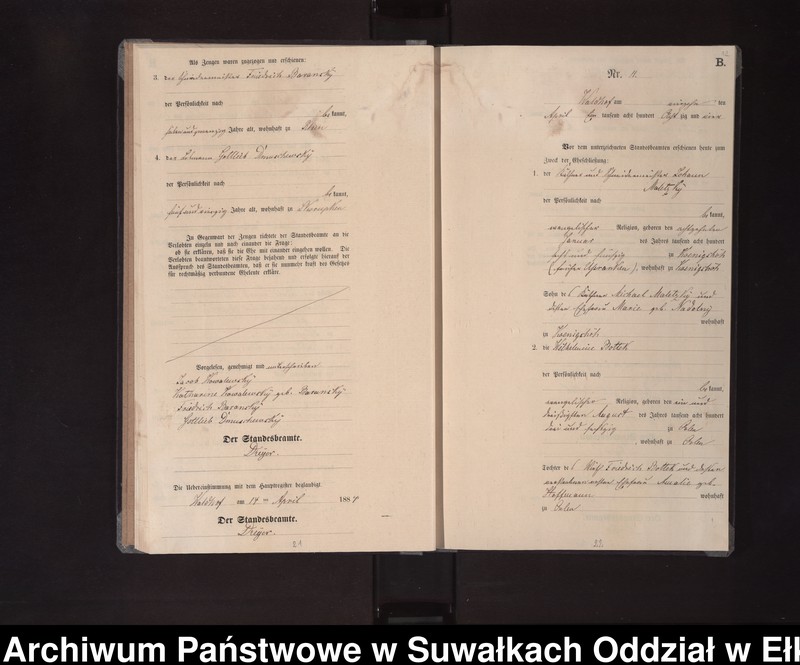 Als Zeugen waren zugezogen und erschienen:
3. der Schneidermeister Friedrich Baransky
der Persönlichkeit nach
be kannt,
Jahre alt, wohnhaft zu
4. der Gottlieb
der Persönlichkeit nach
be kannt,
fünf und vierzig Jahre alt, wohnhaft zu
In Gegenwart der Zeugen richtete der Standesbeamte an die
Verlobten einzeln und nach einander die Frage:
ob sie erklären, daß sie die Ehe mit einander eingehen wollen. Die
Verlobten beantworteten diese Frage bejahend und erfolgte hierauf der
Ausspruch des Standesbeamten, daß er sie nunmehr kraft des Gesetzes
für rechtmäßig verbundene Eheleute erkläre.
Vorgelesen, genehmigt und unterschrieben
Jacob Kowalewsky
Katharine Kowalewsky geb. Baransky
Friedrich Baransky
Gottlieb
Der Standesbeamte.
Dreyer.
Die Uebereinstimmung mit dem Hauptregister beglaubigt
Waldhof am 14 ten April 1884
Der Standesbeamte.
Dreyer.
21
B.
Nr. 11.
Waldhof am den
April tausend acht hundert acht zig und vier
Vor dem unterzeichneten Standesbeamten erschienen heute zum
Zweck der Eheschließung:
1. der und Schneidermeister Johann
Maletzky
der Persönlichkeit nach
be kannt,
evangelischer Religion, geboren den achtzehnten
Januar des Jahres tausend acht hundert
acht und fünfzig zu Koenigshöh
(früher Uszranken), wohnhaft zu Koenigshöh
Sohn des Michael Maletzky und
dessen Ehefrau Marie geb. Nadolny
wohnhaft
zu Koenigshöh
2. die Wilhelmine Bottek
der Persönlichkeit nach
be kannt,
evangelischer Religion, geboren den ein und
dreißigsten August des Jahres tausend acht hundert
drei und sechszig zu Salza
, wohnhaft zu Salza
Tochter des Friedrich Bottek und dessen
ersten Ehefrau Amalie geb.
Hoffmann wohnhaft
zu Salza
22
Archiwum Państwowe w Suwałkach Oddział w Eł